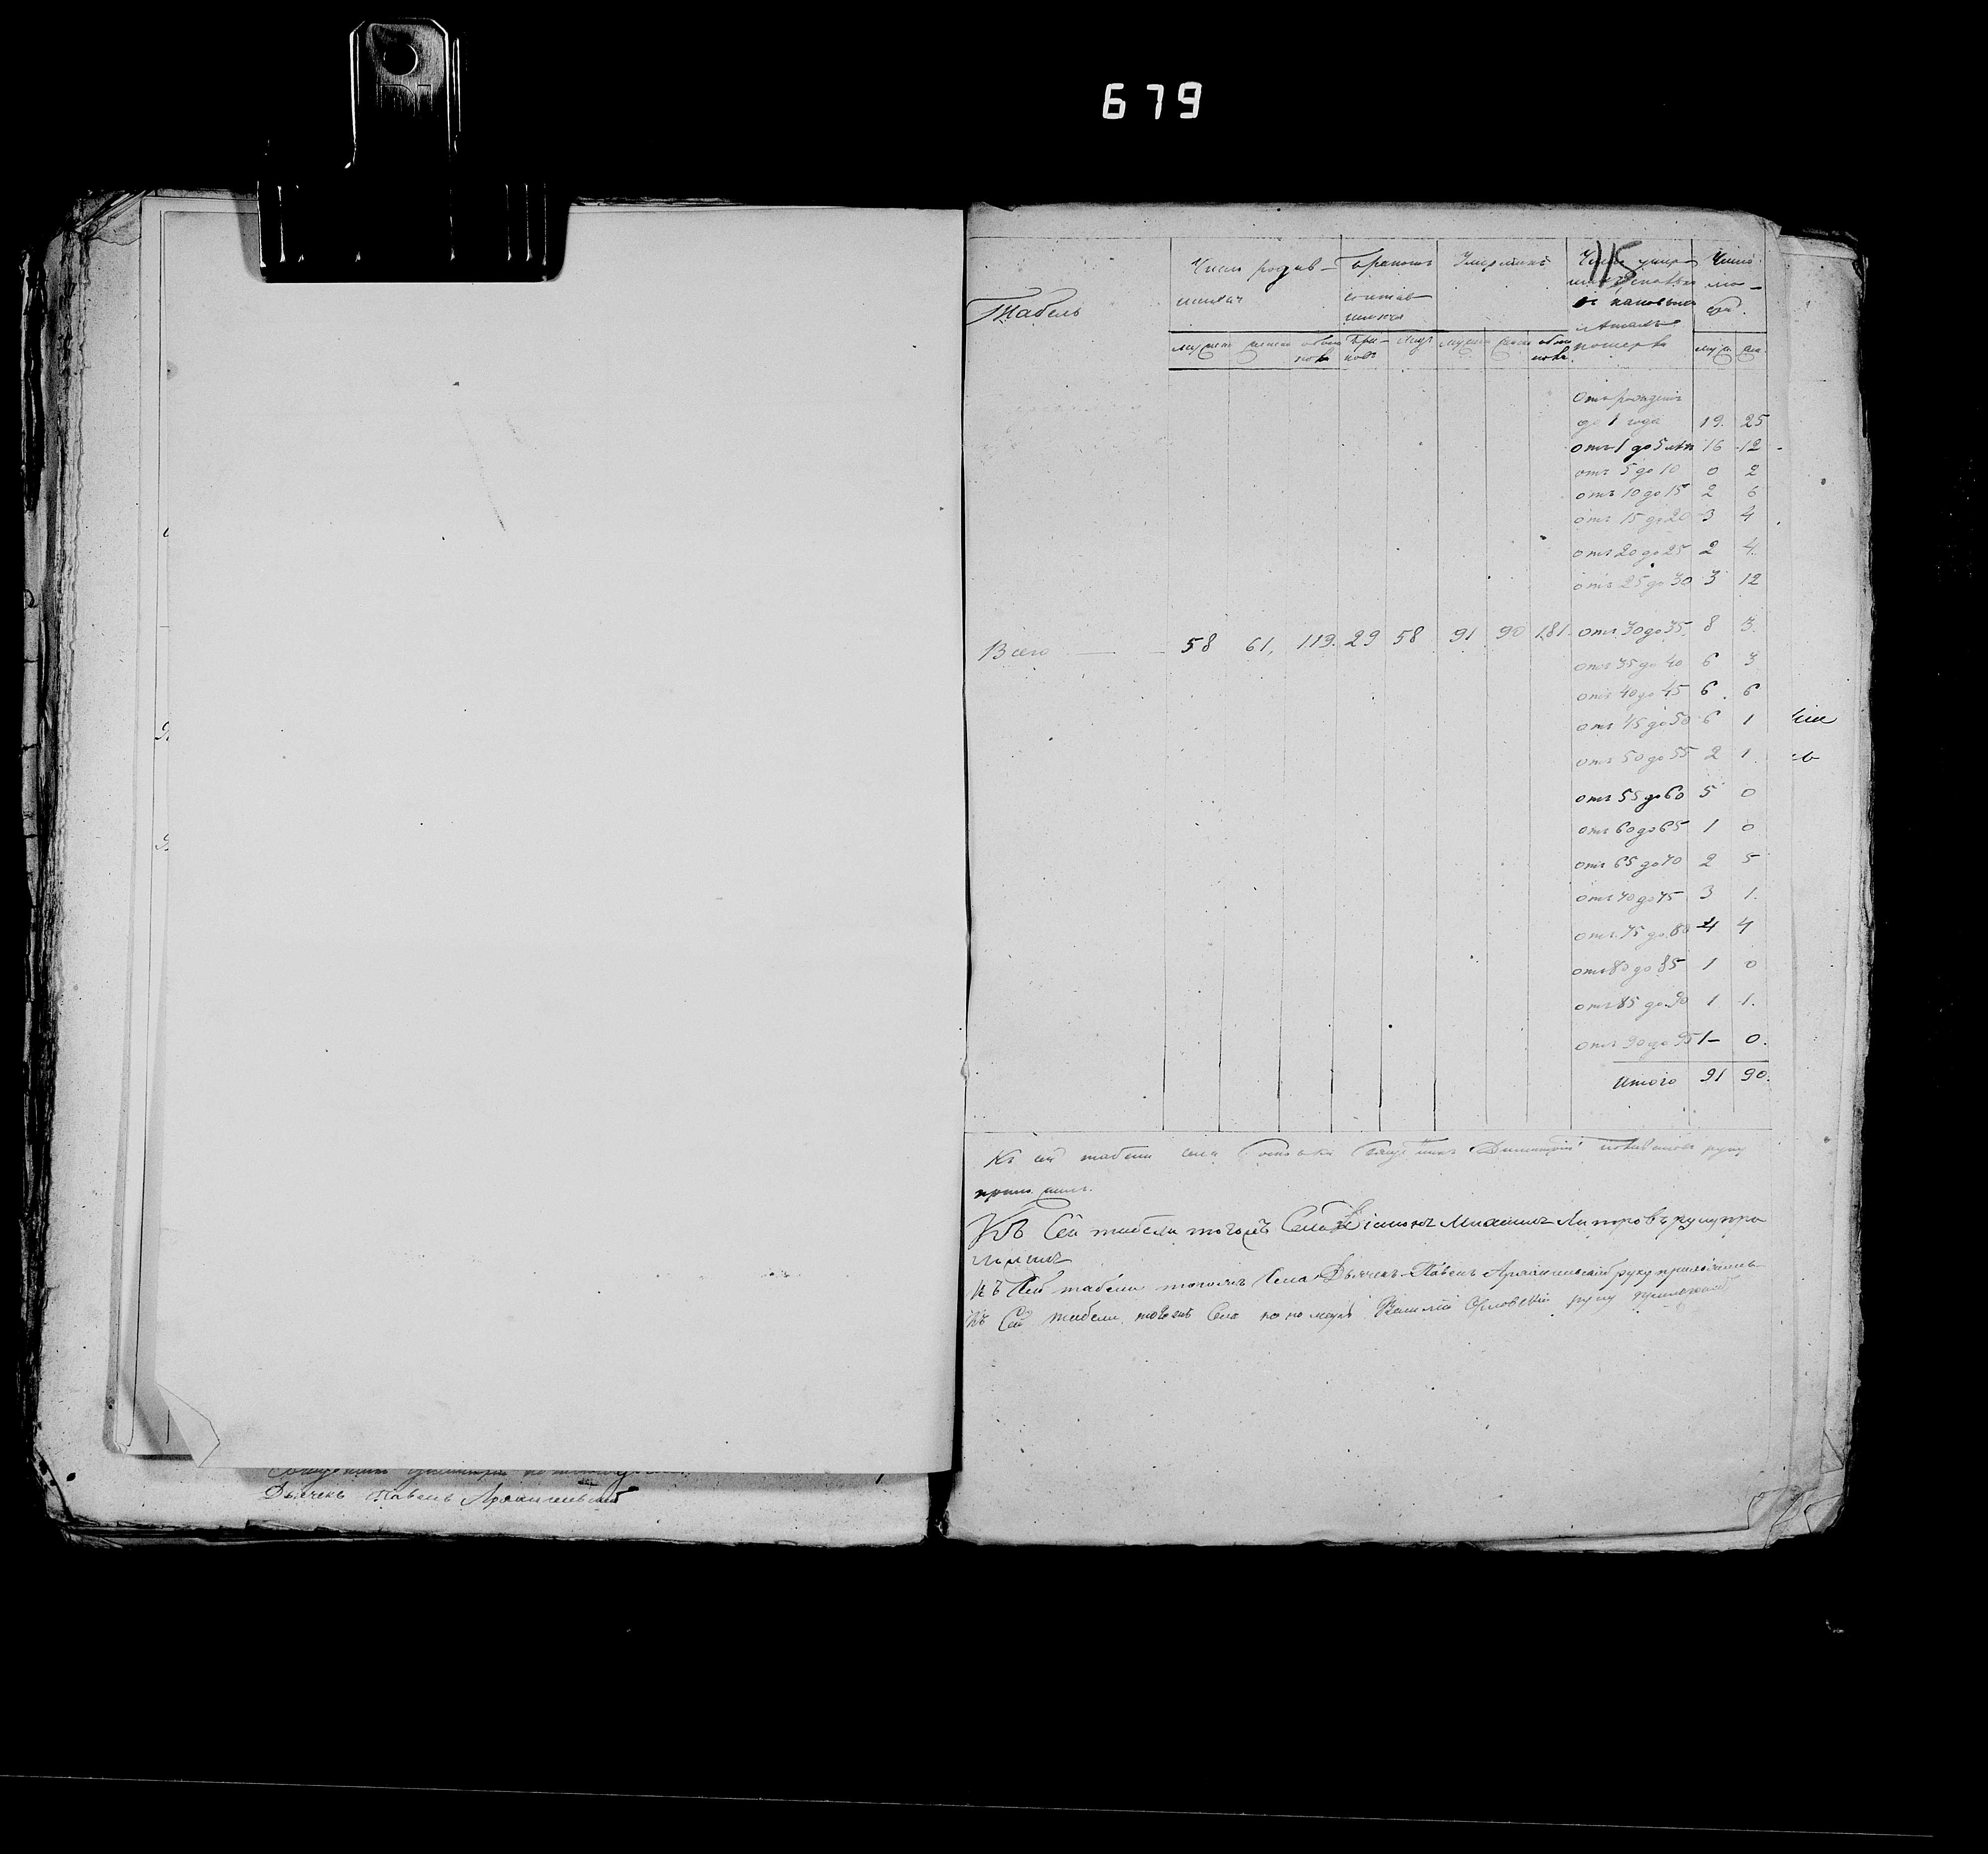 679
115
Табель
Число родив-
шихся
Браковъ
Умершихъ
Число
лю-
дей.
От рожденiя
до 1 года 19. 25
отъ 1 до 5 лѣтъ 16 12
отъ 5 до 10 0 2
отъ 10 до 15 2 6
отъ 15 до 20 3 4
отъ 20 до 25 2 4.
отъ 25 до 30 3 12
Всего 58 61, 119. 29 58 91 90 181. отъ 30 до 35. 8 3.
отъ 35 до 40 6 3
отъ 40 до 45 6. 6
отъ 45 до 50 6 1
отъ 50 до 55 2 1.
отъ 55 до 60 5 0
отъ 60 до 65 1 0
отъ 65 до 70 2 5
отъ 70 до 75 3 1.
отъ 75 до 80 4 4
отъ 80 до 85 1 0
отъ 85 до 90 1 1.
отъ 90 до 95 1- 0.
Итого 91 90.
Къ сей табели села Димитрiй руку
приложилъ.
Къ Сей табели тогожъ Села Дiаконъ Михаилъ руку при
ложилъ
Къ Сей табели тогожъ Села Дьячекъ Павелъ Архангельскiй руку приложилъ
Къ Сей табели тогожъ Села пономарь Василiй Орловскiй руку приложилъ
Дьячекъ Павелъ Архангельскiй